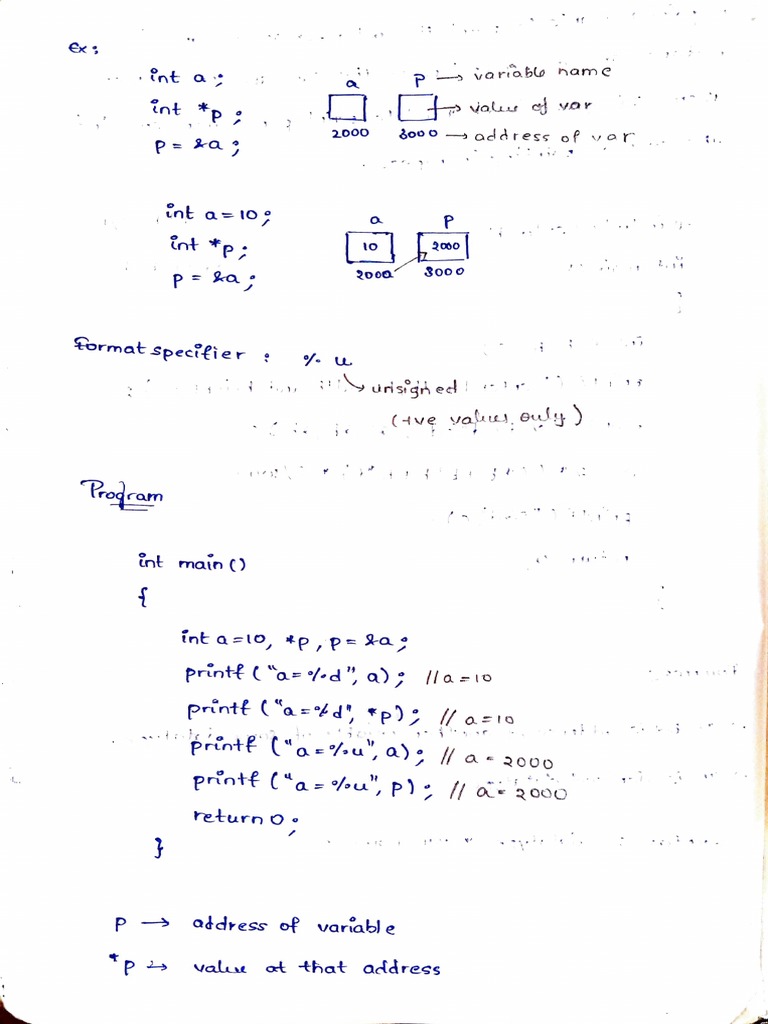 Ex:
int a;
a
P → variable name
int *p;
→ value of var
p = &a;
2000
3000 → address of var
int a=10;
a
P
int *p;
10
2000
p = &a;
2000
3000
Format specifier : % u
unsigned
(+ve values only)
Program
int main()
{
int a=10, *p, p = &a;
printf ("a=%d", a); //a=10
printf ("a=%d", *p); // a=10
printf ("a=%u", a); // a = 2000
printf ("a=%u", p); // a = 2000
return 0;
}
P → address of variable
*p → value at that address